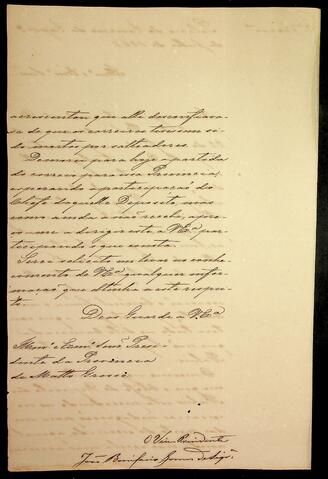 acrescentou que elle desconfiava-
va de que os correios tivessem si-
do mortos por salteadores.
Demorei para hoje a partida
do correio para essa Provincia,
esperando a participação do
Chefe daquelle Deposito mas
como ainda a não recebi, apres-
so-me a dirigir esta a V. Exª par-
ticipando o que consta.
Serei solicito em levar ao conhe-
cimento de V. Exª qualquer infor-
mação que obtenha a este respei-
to.
Deos Guarde a V. Exª
Illmo. e Exmo. Snr. Presi-
dente da Provincia
de Matto Grosso
O Vice Presidente
João Bonifacio Gomes de Siqª.